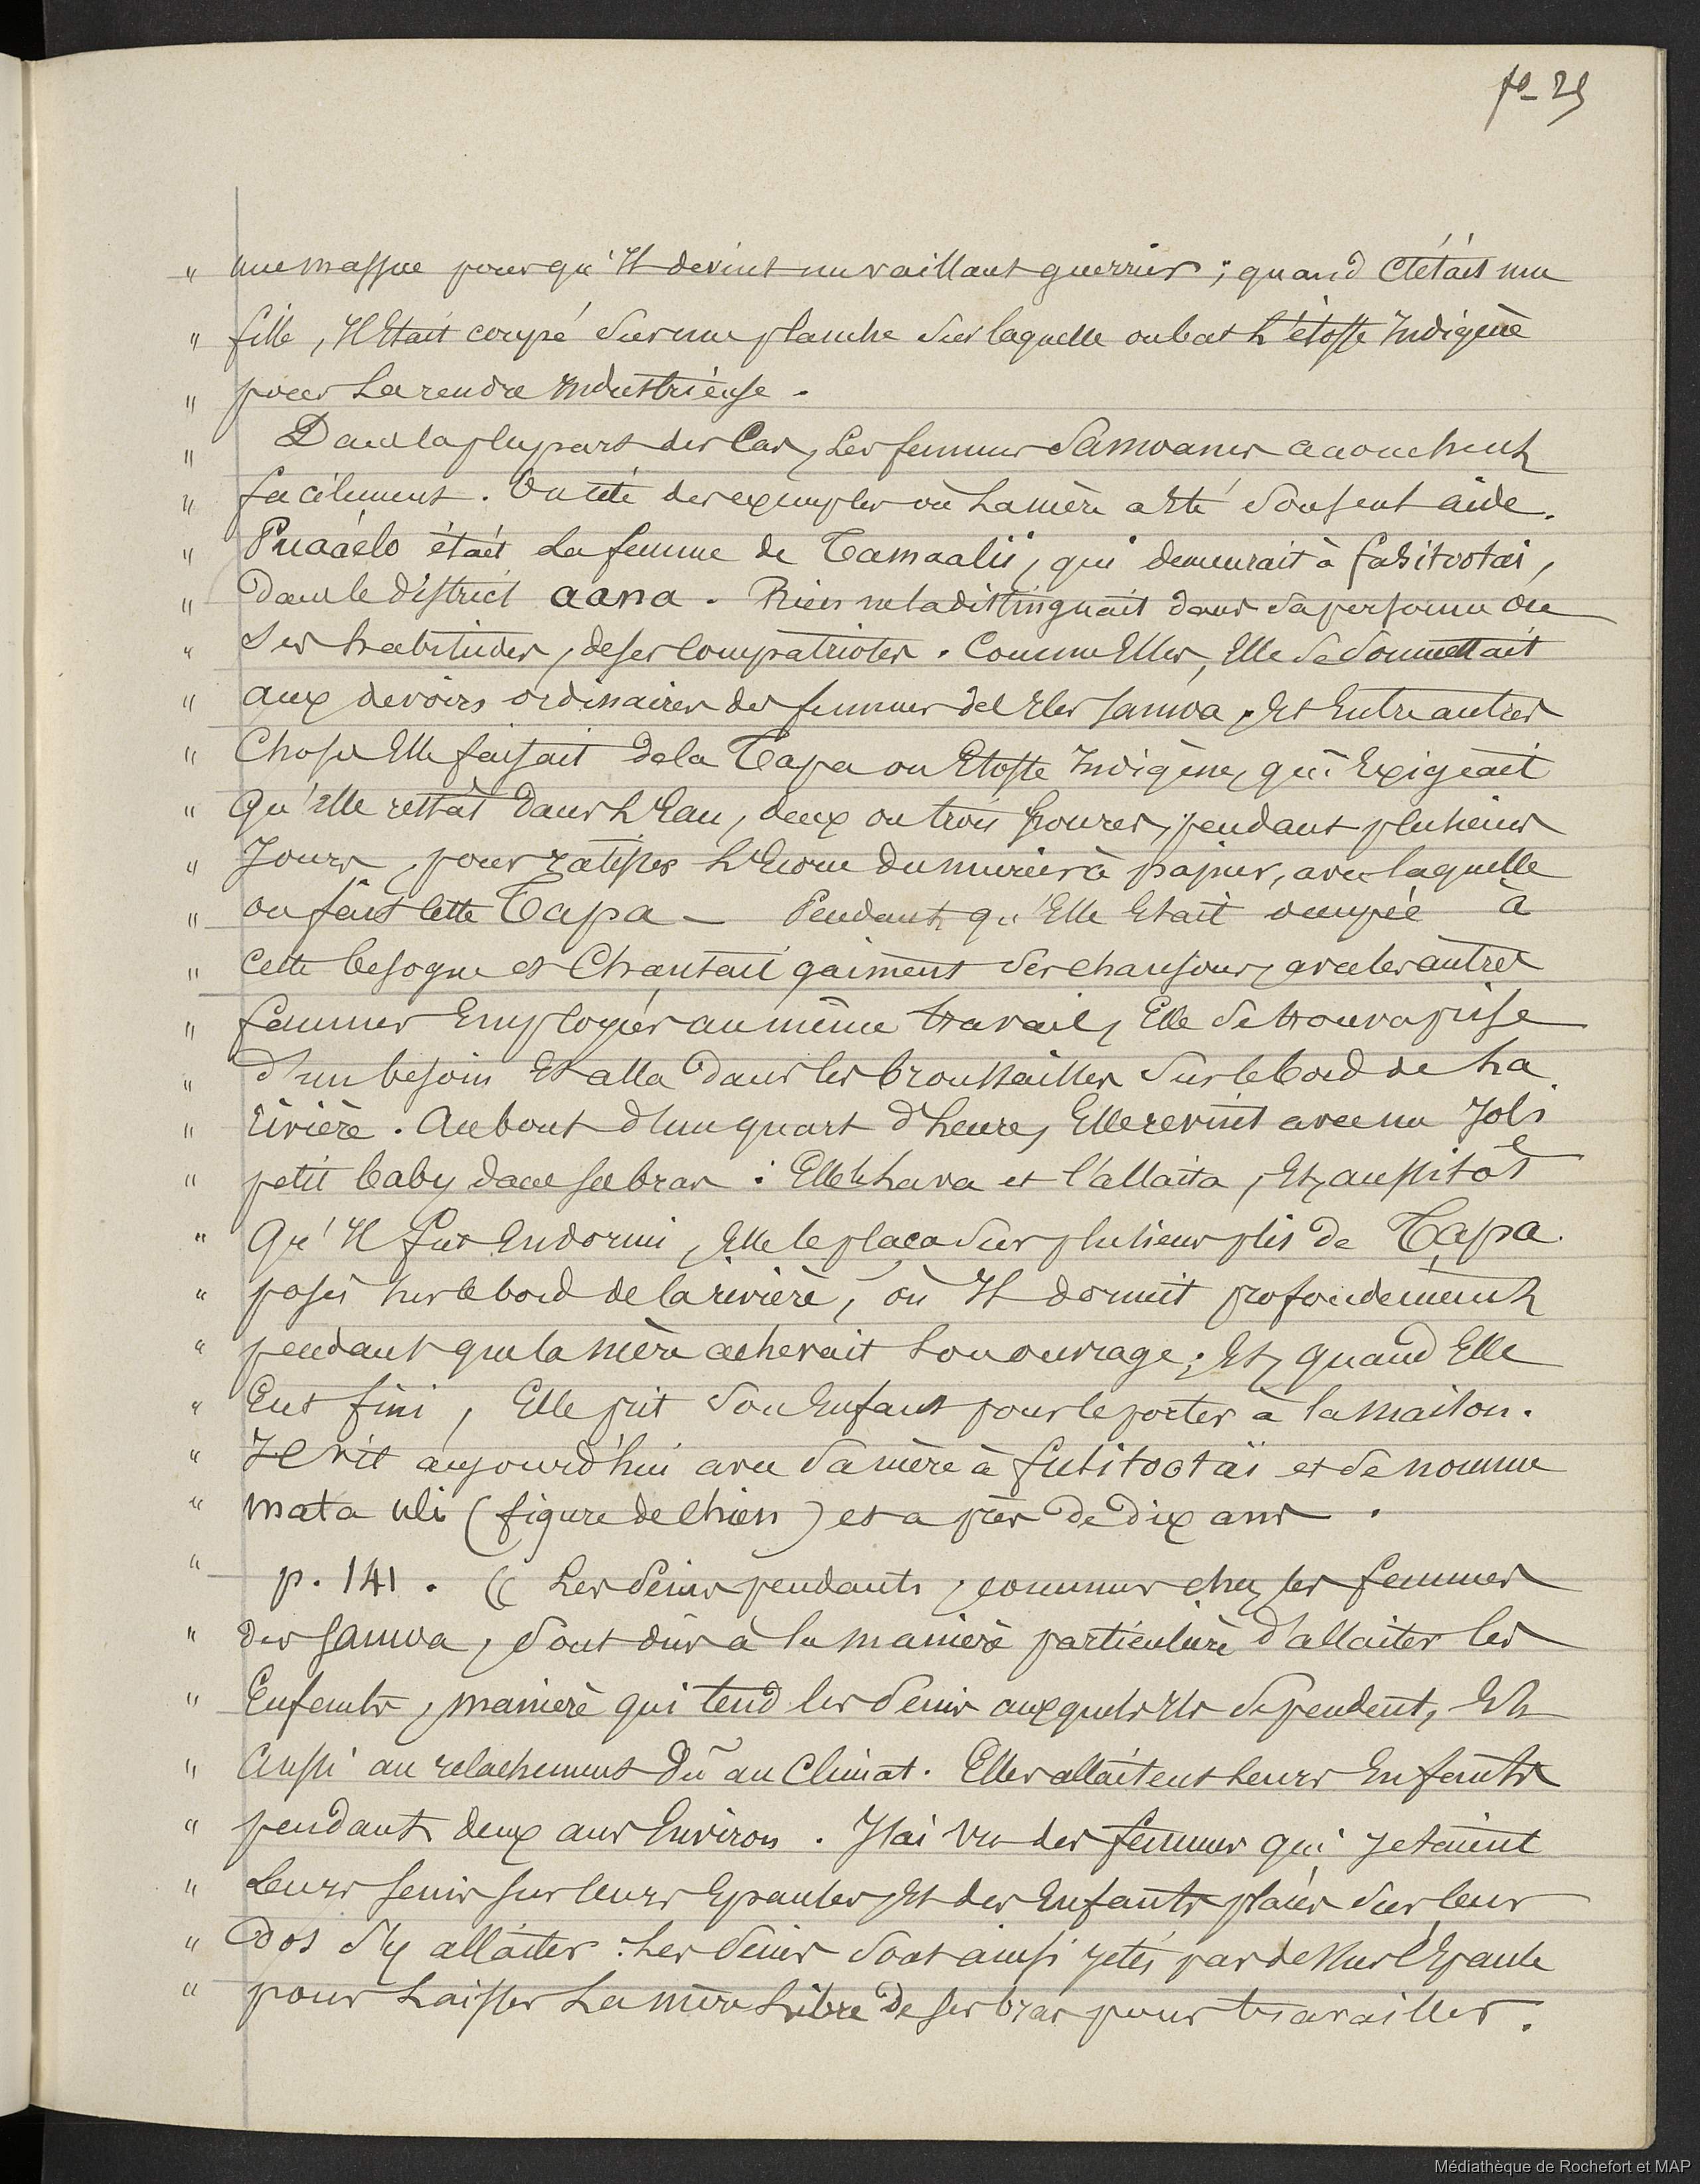 fo_ 29
" une massue pour qu'Il devint un vaillant guerrier ; quand c'était une
" fille, Il Etait coupé sur une planche sur laquelle on bat L'étoffe Indigène
" pour La rendre Industrieuse.
" Dans la plupart des Cas, Les femmes Samoanes accouchent
" facilement. On cite des exemples où La mère a Eté son seul aide.
" Puaaelo était La femme de Tamaalii, qui demeurait à fasitootai,
" Dans le District aana. Rien ne la distinguait dans sa personne ou
" Ses habitudes, de ses Compatriotes. Comme Elles, Elle se soumettait
" aux devoirs ordinaires des femmes des Iles Samoa, Et Entre autres
" Choses Elle faisait de la Tapa ou Etoffe Indigène, qui Exigeait
" Qu'Elle restât Dans L'Eau, deux ou trois heures, pendant plusieurs
" Jours, pour ratisser L'Ecorce du murier à papier, avec laquelle
" on fait Cette Tapa _ Pendant qu'Elle Etait occupée à
" Cette besogne et Chantait gaiment des chansons, avec les autres
" femmes Employées au même travail, Elle se trouva prise
" d'un besoin Et alla Dans les broussailles Sur le bord de La
" rivière. Au bout d'un quart d'heure, Elle revint avec un Joli
" petit baby dans ses bras : Elle le Lava et l'allaita, Et, aussitôt
" Qu'Il fut Endormi, Elle le plaça sur plusieurs plis de Tapa
" posés sur le bord de la rivière, où Il dormit profondément
" pendant que la mère achevait Son ouvrage ; Et, quand Elle
" Eut fini, Elle prit Son Enfant pour le porter à la maison.
" Il vit aujourd'hui avec Sa mère à fasitootaï et se nomme
" mata uli (figure de chien) et a près De Dix ans.
" p. 141. (( Les seins pendants, communs chez les femmes
" des Samoa, sont dûs à la manière particulière d'allaiter les
" Enfants, manière qui tend les seins auxquels Ils se pendent, Et
" Aussi au relachement Dû au Climat. Elles allaitent Leurs Enfants
" pendant deux ans Environ. J'ai vu des femmes qui jetaient
" Leurs seins sur leurs Epaules, Et des Enfants placés sur leur
" Dos s'y allaiter. Les Seins sont ainsi jetés par dessus l'Epaule
" pour Laisser La mère Libre De ses bras pour travailler.
Médiathèque de Rochefort et MAP